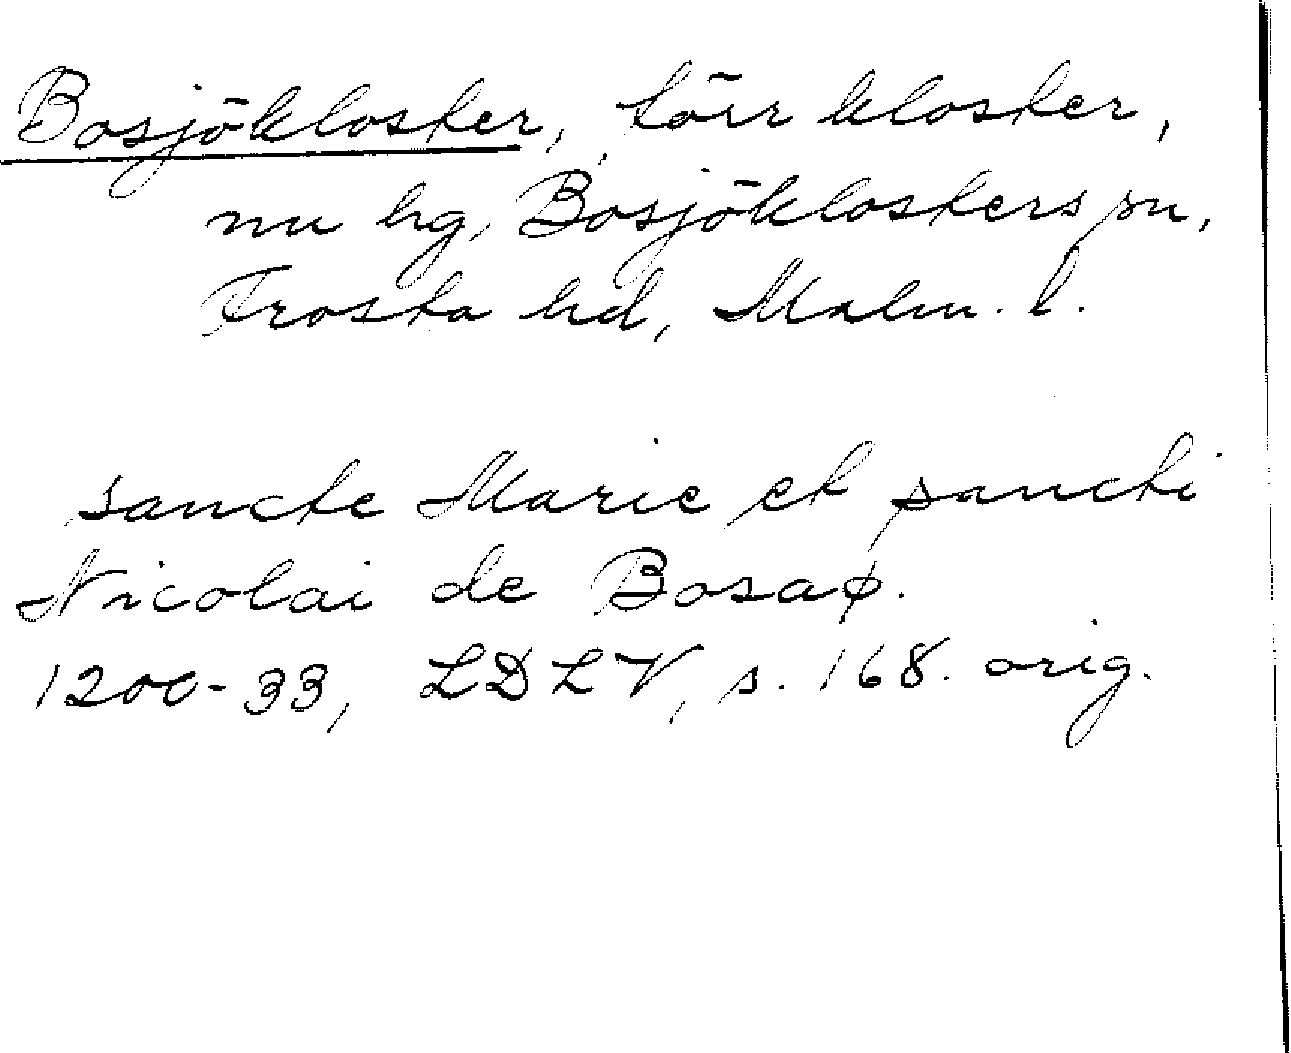 Bosjökloster, förr kloster,
nu hg, Bosjöklosters sn,
Frosta hd, Malm. l.
sancte Marie et sancti
Nicolai de Bosaø.
1200-33, LDLV, s. 168. orig.